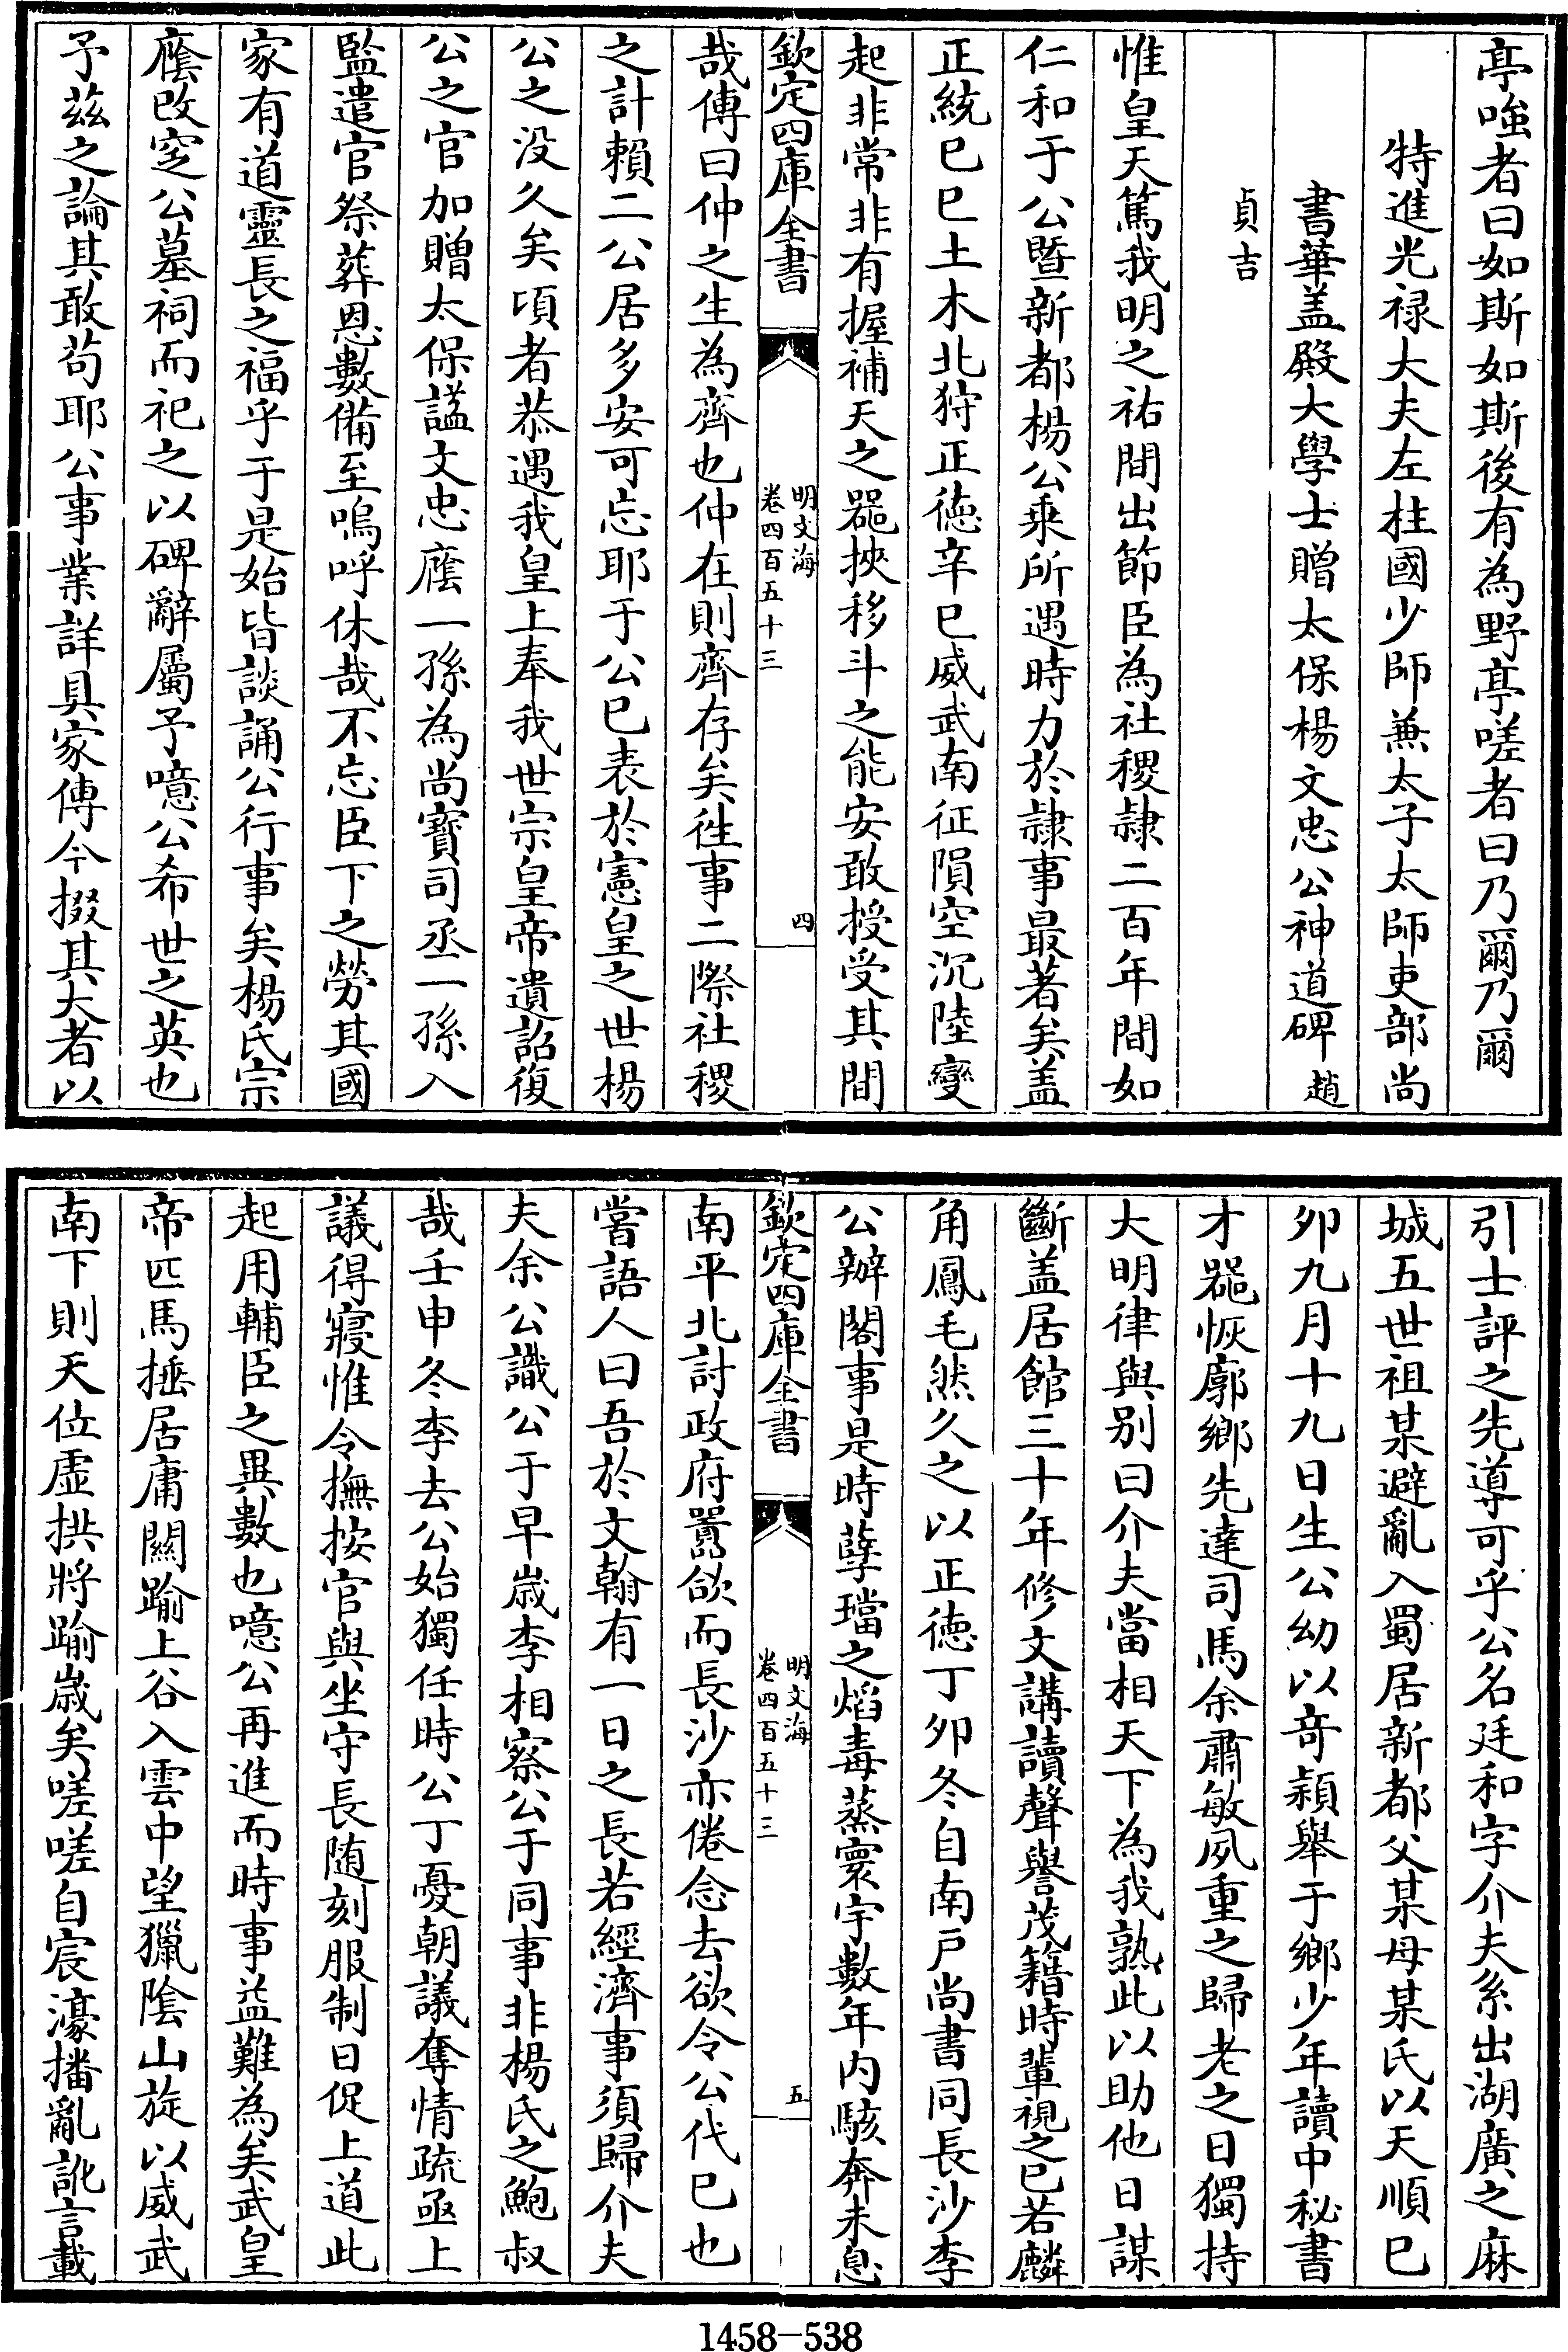 亭嗤者曰如斯如斯後有為野亭嗟者曰乃爾乃爾
特進光禄大夫左柱國少師兼太子太師吏部尚
書華盖殿大學士贈太保楊文忠公神道碑 趙
貞吉
惟皇天篤我明之祐間出節臣為社稷隷二百年間如
仁和于公暨新都楊公乘所遇時力於隷事最著矣盖
正統己巳土木北狩正徳辛巳威武南征隕空沉陸變
起非常非有握補天之器挾移斗之能安敢授受其間
欽定四庫全書
明文海
卷四百五十三
四
哉傳曰仲之生為齊也仲在則齊存矣徃事二際社稷
之計賴二公居多安可忘耶于公已表於憲皇之世楊
公之没久矣頃者恭遇我皇上奉我世宗皇帝遺詔復
公之官加贈太保諡文忠廕一孫為尚寳司丞一孫入
監遣官祭葬恩數備至嗚呼休哉不忘臣下之勞其國
家有道靈長之福乎于是始皆談誦公行事矣楊氏宗
廕改窆公墓祠而祀之以碑辭屬予噫公希世之英也
予兹之論其敢苟耶公事業詳具家傳今掇其大者以
引士評之先導可乎公名廷和字介夫系出湖廣之麻
城五世祖某避亂入蜀居新都父某母某氏以天順己
夘九月十九日生公幼以奇頴舉于鄉少年讀中秘書
才器恢廓鄉先達司馬余肅敏夙重之歸老之日獨持
大明律與别曰介夫當相天下為我熟此以助他日謀
斷盖居館三十年修文講讀聲譽茂籍時輩視之已若麟
角鳳毛然久之以正徳丁夘冬自南戸尚書同長沙李
公辦閣事是時孽璫之焰毒蒸寰宇數年内駭奔未息
欽定四庫全書
明文海
卷四百五十三
五
南平北討政府囂欲而長沙亦倦念去欲令公代已也
嘗語人曰吾於文翰有一日之長若經濟事須歸介夫
夫余公識公于早歳李相察公于同事非楊氏之鮑叔
哉壬申冬李去公始獨任時公丁憂朝議奪情疏亟上
議得寢惟令撫按官與坐守長随刻服制日促上道此
起用輔臣之異數也噫公再進而時事益難為矣武皇
帝匹馬捶居庸闗踰上谷入雲中望獵隂山旋以威武
南下則天位虚拱將踰歳矣嗟嗟自宸濠播亂訛言載
1458-538